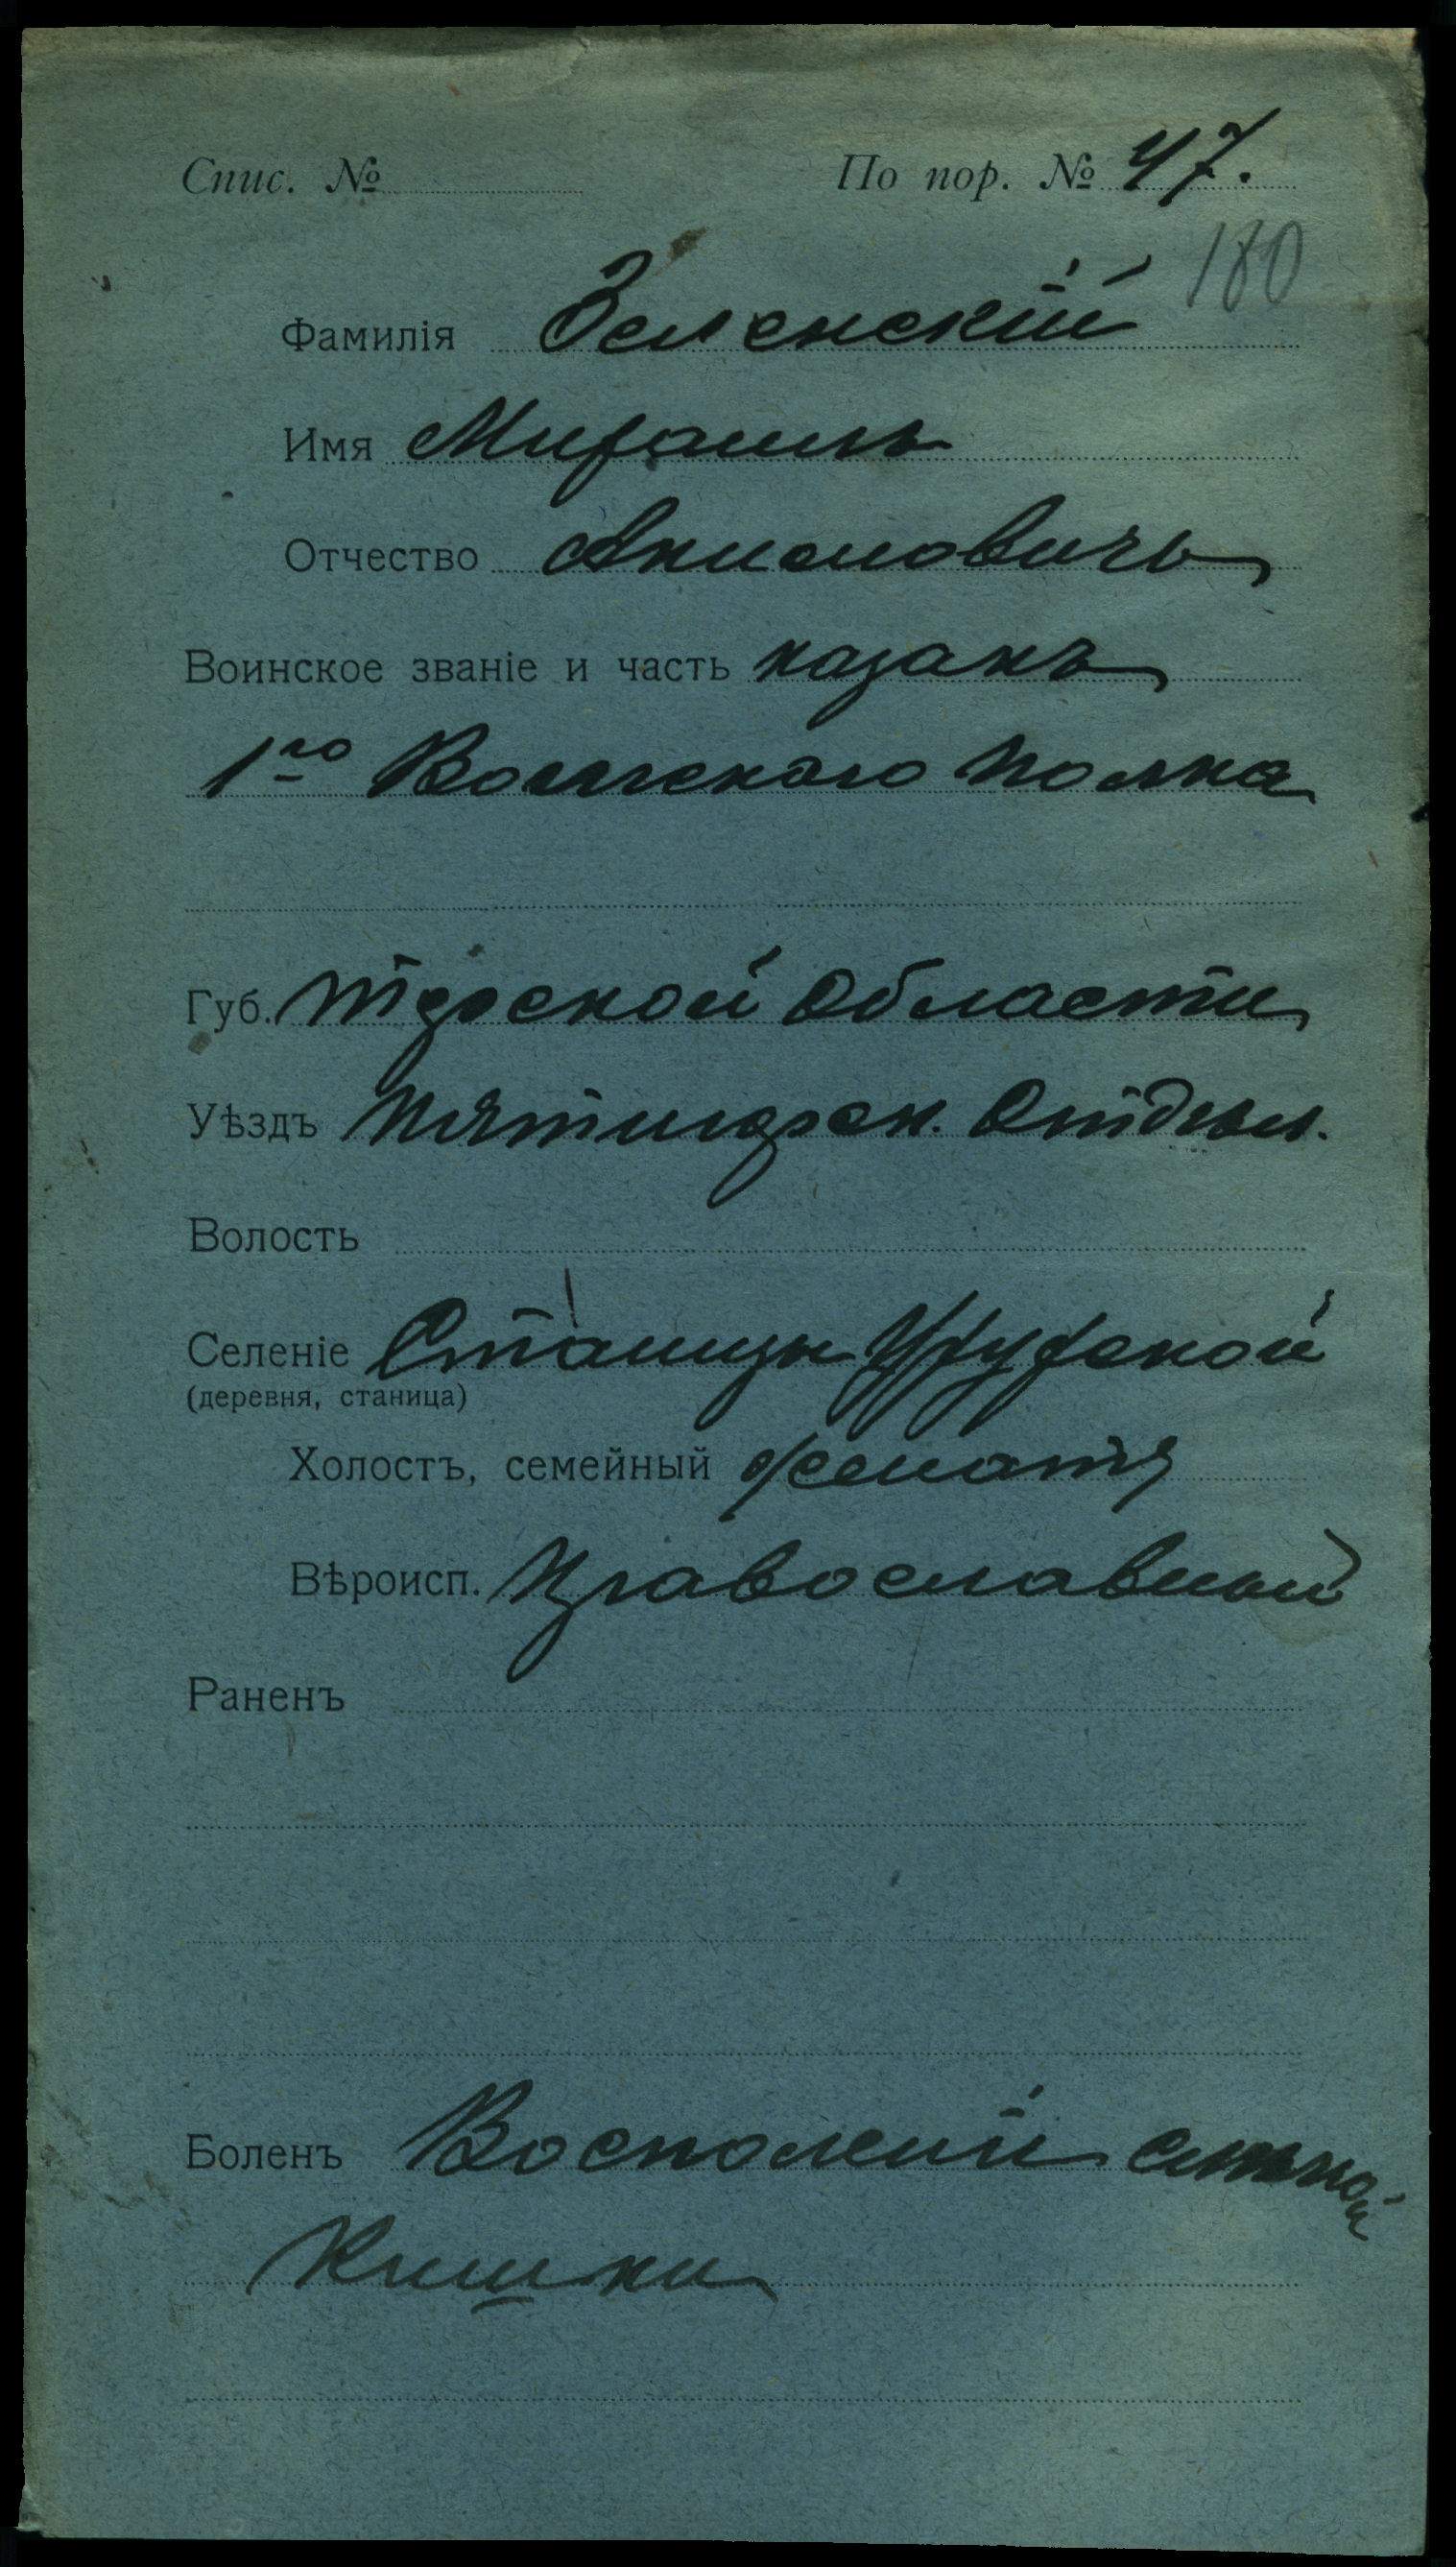 Спис. № По пор. № 47.
180
Фамилія Зеленскій
Имя Михаилъ
Отчество Акимовичъ
Воинское званіе и часть казакъ
1го Волгскаго полка
Губ. Терской Области
Уѣздъ Пятигорск. Отдѣл.
Волость
Селеніе Станицы Урухской
(деревня, станица)
Холостъ, семейный женатъ
Вѣроисп. Православный
Раненъ
Боленъ Воспаленій слѣпой
Кишки